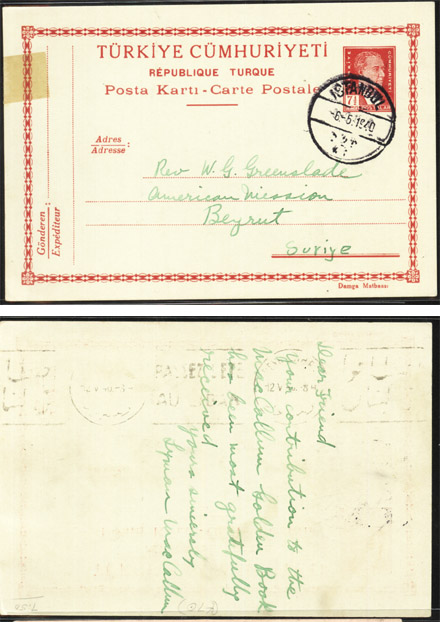 TÜRKİYE CÜMHURİYETİ
RÉPUBLIQUE TURQUE
Posta Kartı - Carte Postale
ISTANBUL
-6-5-1940
Adres
Adresse :
Rev W. G. Greenslade
American Mission
Beyrut
Suriye
Gönderen :
Expéditeur
Damga Matbaası
Dear Friend
Your contribution to the
MacCallum Golden Book
has been most gratefully
received
Yours sincerely
Lyman MacCallum